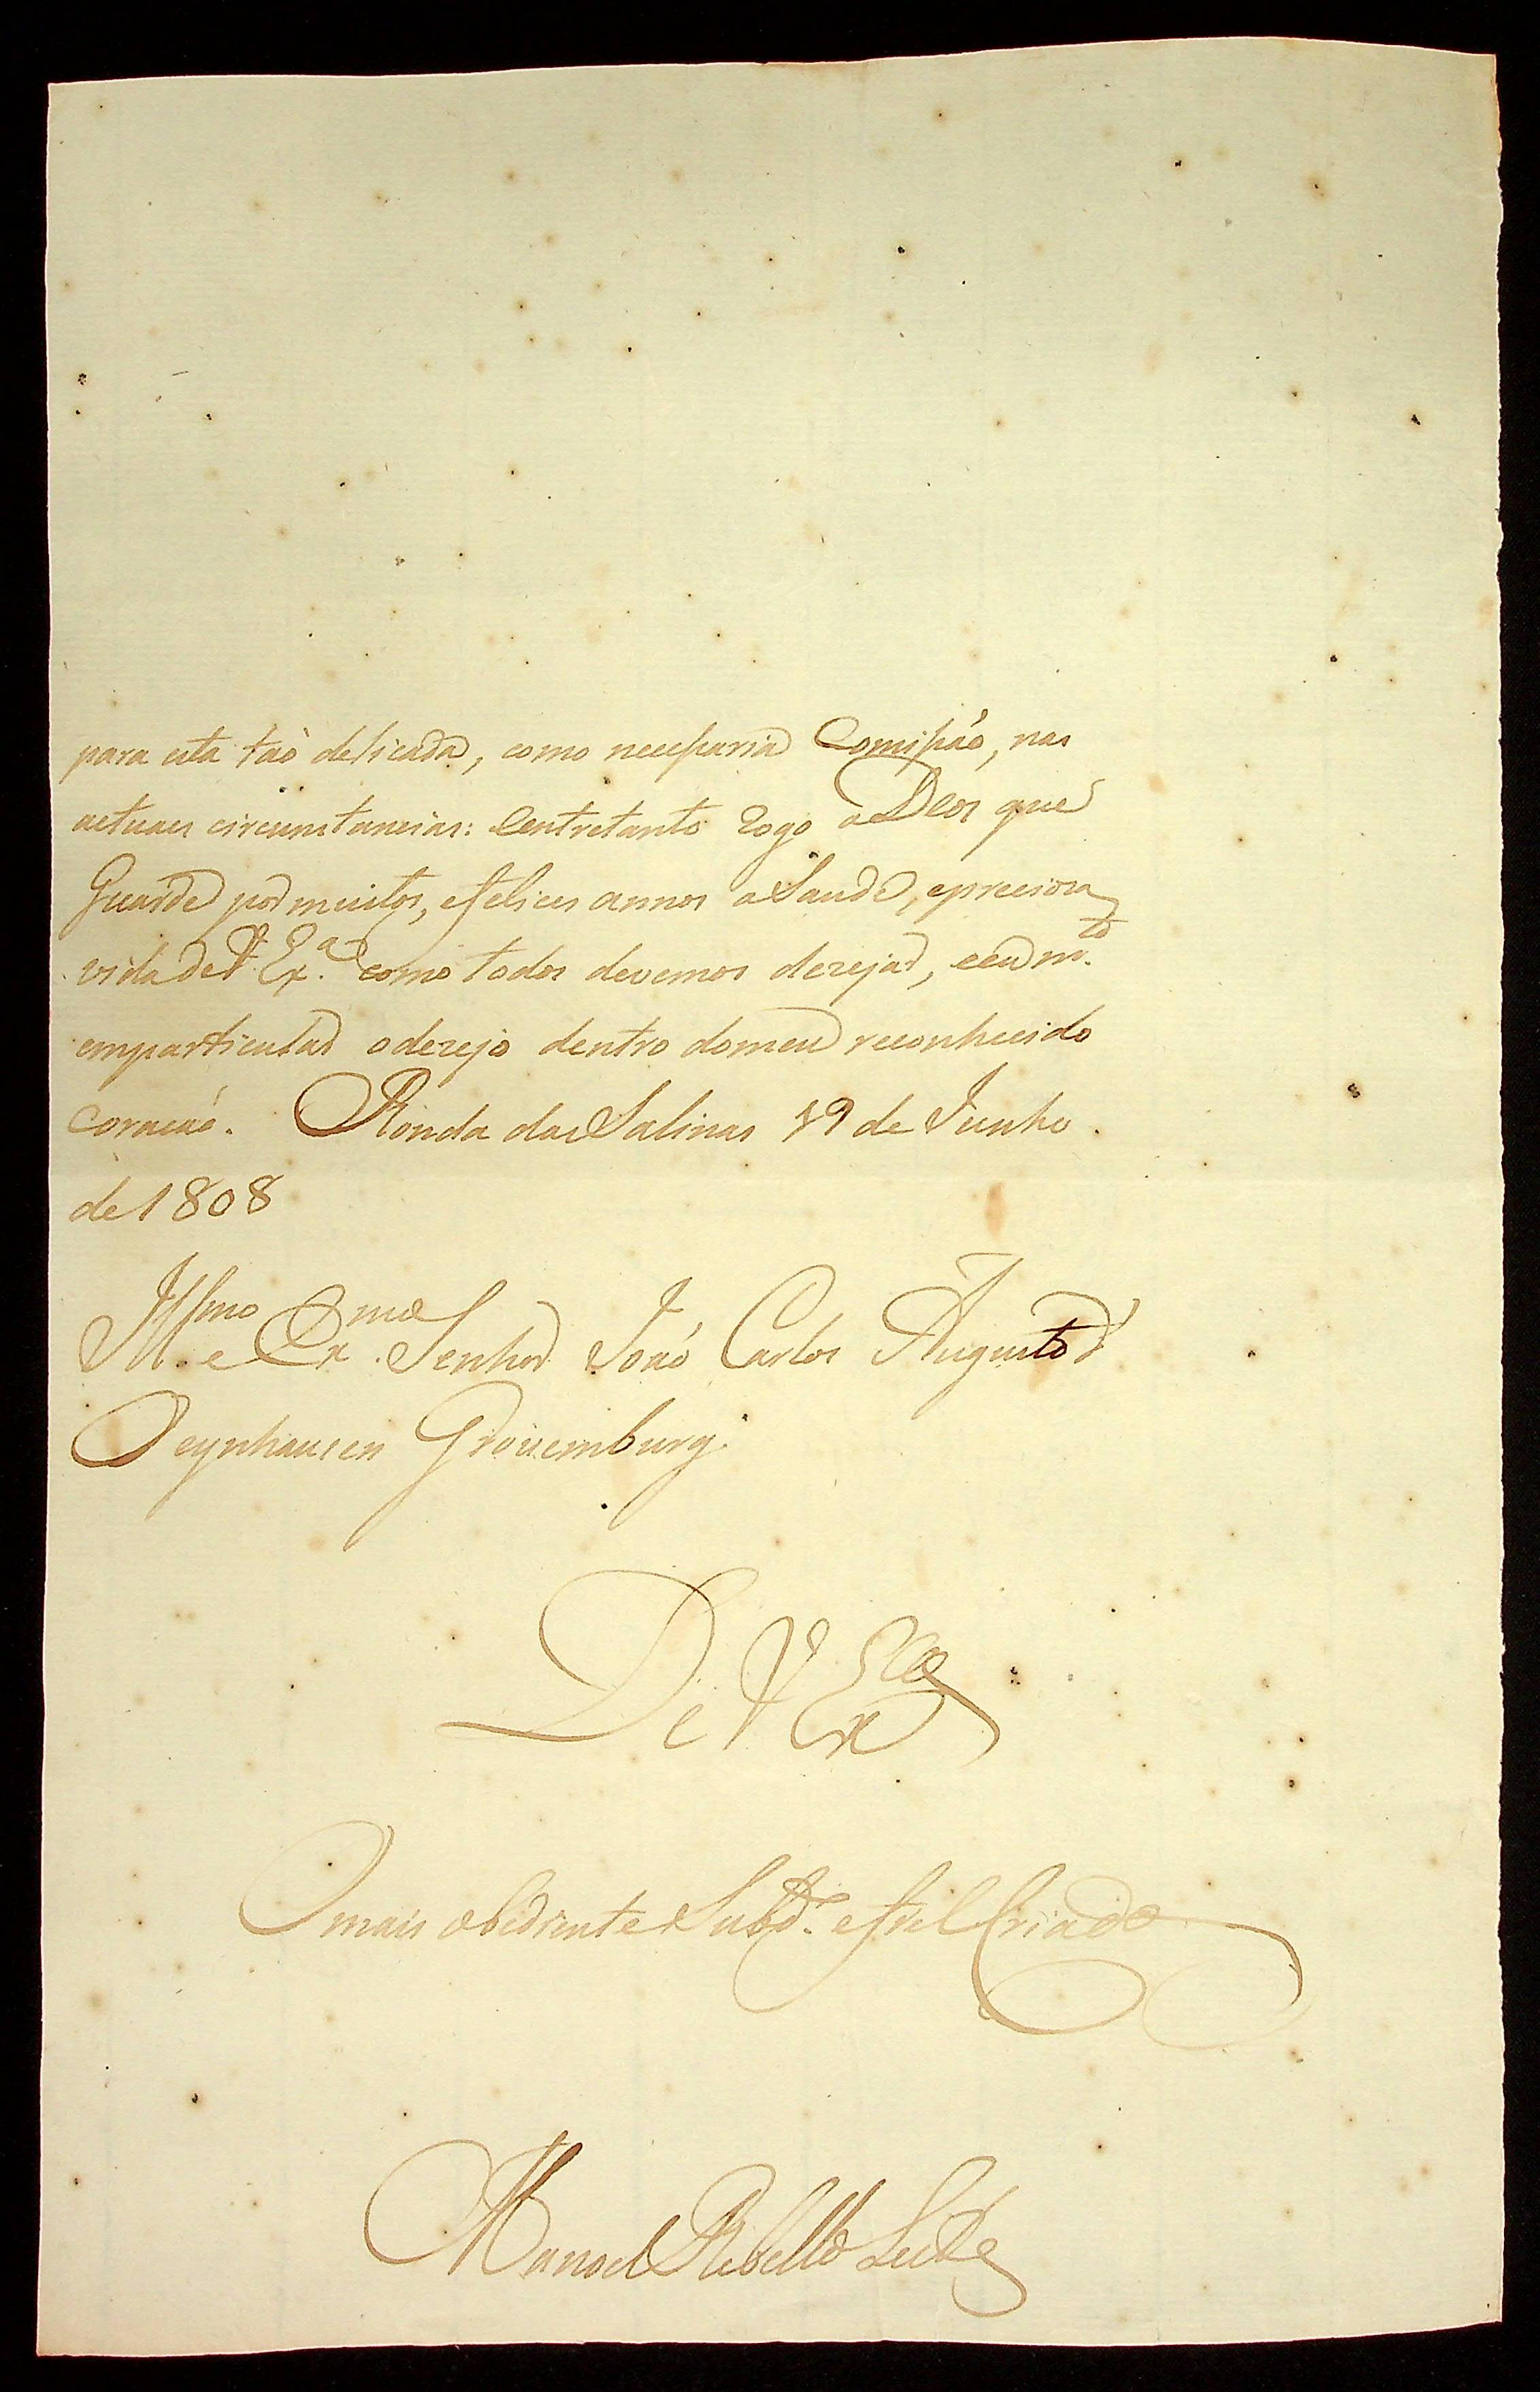 para esta taõ delicada, como necessaria Comissáo, nas
actuaes circunstancias: Eentretanto rogo a Deos que
Guarde por muitos, e felices annos a Saude, epreciosa
vida de V. Ex.ª como todos devemos dezejar, eeu m.to
emparticular odezejo dentro domeu reconhecido
Coraçaó. Ronda das Salinas 19 de Junho
de 1808
Ill.mo e Ex.mo Senhor Joaó Carlos Augusto d'
Oeynhausen Grovemburg.
De V Ex.ca
O mais obediente Subd.º e fiel Criado
Manoel Rebello Leite